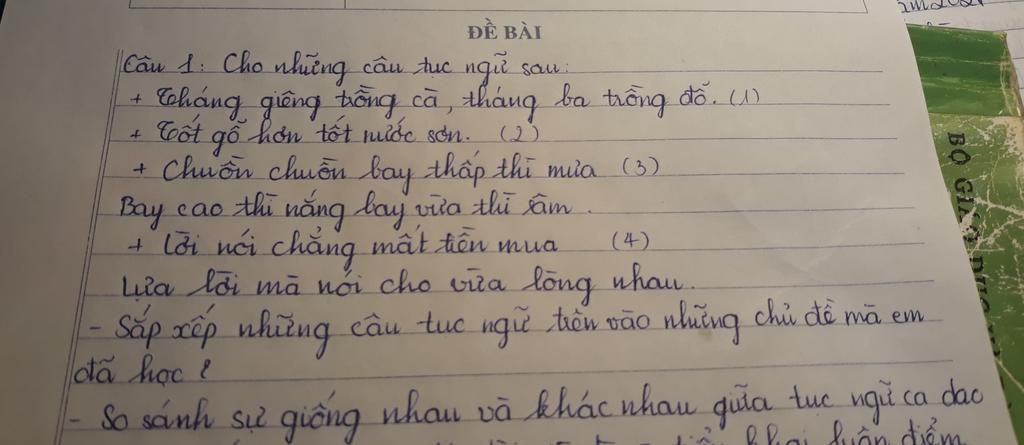 ĐỀ BÀI
Câu 1: Cho những câu tục ngữ sau:
+ Tháng giêng trồng cà, tháng ba trồng đỗ. (1)
+ Tốt gỗ hơn tốt nước sơn. (2)
+ Chuồn chuồn bay thấp thì mưa (3)
Bay cao thì nắng bay vừa thì râm.
+ Lời nói chẳng mất tiền mua (4)
Lựa lời mà nói cho vừa lòng nhau.
- Sắp xếp những câu tục ngữ trên vào những chủ đề mà em
đã học?
- So sánh sự giống nhau và khác nhau giữa tục ngữ ca dao
khai luận điểm
BỘ GIÁO DỤC